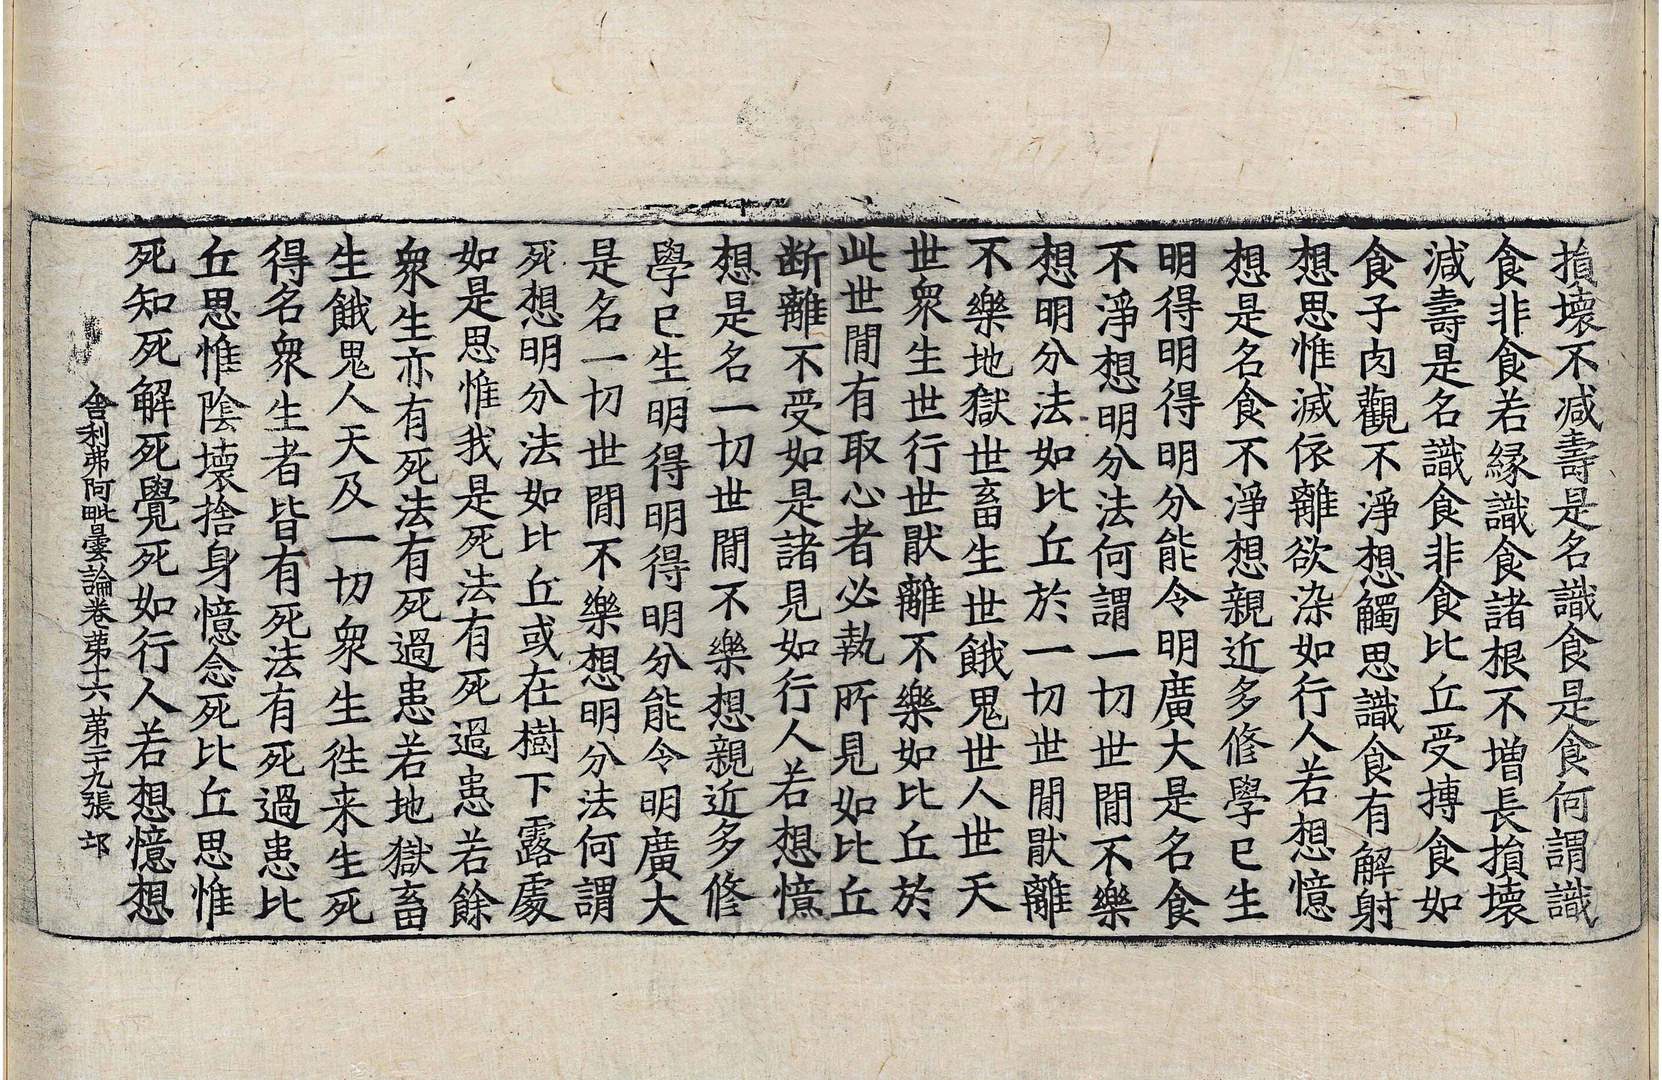 損壞不減壽是名識食是食何謂識
食非食若縁識食諸根不增長損壞
減壽是名識食非食比丘受摶食如
食子肉觀不淨想觸思識食有解射
想思惟滅依離欲染如行人若想憶
想是名食不淨想親近多修學已生
明得明得明分能令明廣大是名食
不淨想明分法何謂一切世間不樂
想明分法如比丘於一切世間猒離
不樂地獄世畜生世餓鬼世人世天
世衆生世行世猒離不樂如比丘於
此世間有取心者必執所見如比丘
斷離不受如是諸見如行人若想憶
想是名一切世間不樂想親近多修
學已生明得明得明分能令明廣大
是名一切世間不樂想明分法何謂
死想明分法如比丘或在樹下露處
如是思惟我是死法有死過患若餘
衆生亦有死法有死過患若地獄畜
生餓鬼人天及一切衆生往来生死
得名衆生者皆有死法有死過患比
丘思惟陰壞捨身憶念死比丘思惟
死知死解死覺死如行人若想憶想
舍利弗阿毗曇論卷苐十六苐二十九張 邙